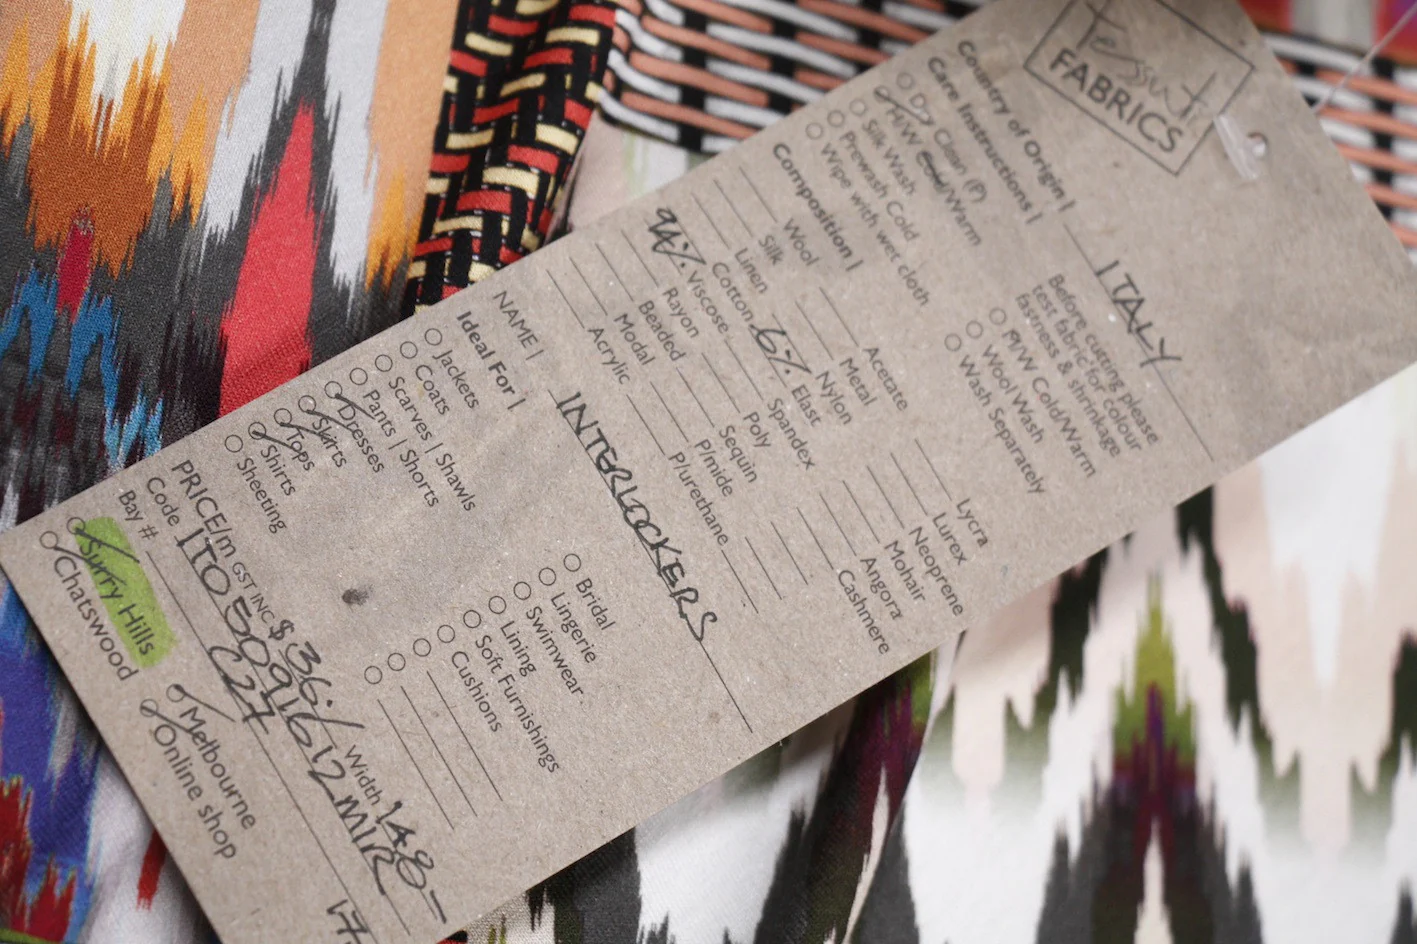 Tessuti
FABRICS
Country of Origin | ITALY
Care Instructions |
Dry Clean (P)
H/W Cold/Warm
Silk Wash
Prewash Cold
Wipe with wet cloth
Before cutting please
test fabric for colour
fastness & shrinkage
P/W Cold/Warm
Wool Wash
Wash Separately
Composition |
Wool
Silk
Linen
Cotton
94% Viscose
Rayon
Beaded
Modal
Acrylic
Acetate
Metal
Nylon
6% Elast
Spandex
Poly
Sequin
P/mide
P/urethane
Lycra
Lurex
Neoprene
Mohair
Angora
Cashmere
NAME | INTERLOCKERS
Ideal For |
Jackets
Coats
Scarves | Shawls
Pants | Shorts
Dresses
Skirts
Tops
Shirts
Sheeting
Bridal
Lingerie
Swimwear
Lining
Soft Furnishings
Cushions
PRICE/m GST INC $36./ Width 148-
Code ITO5091612MIR
Bay # C27
Surry Hills
Chatswood
Melbourne
Online shop